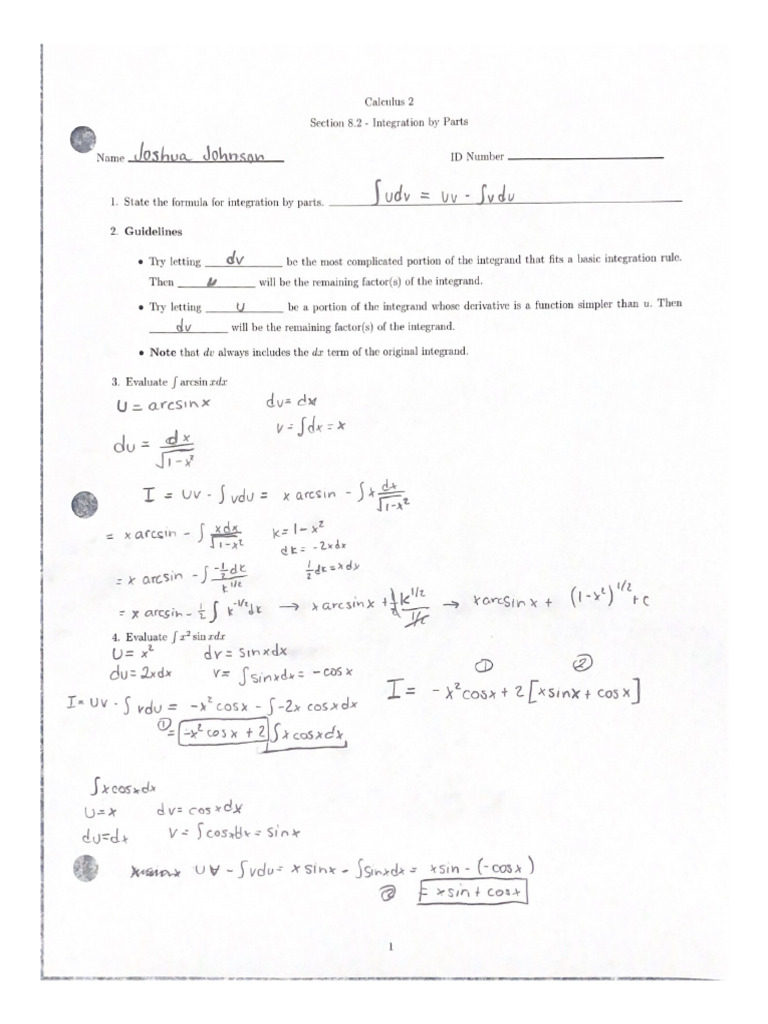 Calculus 2
Section 8.2 - Integration by Parts
Name Joshua Johnson ID Number
1. State the formula for integration by parts. ∫udv = uv - ∫vdu
2. Guidelines
• Try letting dv be the most complicated portion of the integrand that fits a basic integration rule.
Then u will be the remaining factor(s) of the integrand.
• Try letting u be a portion of the integrand whose derivative is a function simpler than u. Then
dv will be the remaining factor(s) of the integrand.
• Note that dv always includes the dx term of the original integrand.
3. Evaluate ∫ arcsin xdx
U = arcsinx dv = dx
v = ∫dx = x
du = dx/√(1-x²)
I = uv - ∫vdu = x arcsin - ∫x dx/√(1-x²)
= x arcsin - ∫ xdx/√(1-x²) k = 1 - x²
dk = -2xdx
= x arcsin - ∫ -½dk/k^1/2 ½dk = xdx
= x arcsin - ½∫ k^-1/2 dk → x arcsinx + ½ k^1/2/1/2 → x arcsinx + (1-x²)^1/2 + c
4. Evaluate ∫ x² sin xdx
U = x² dv = sinxdx
du = 2xdx v = ∫sinxdx = -cosx
① ②
I = -x²cosx + 2[xsinx + cosx]
I = uv - ∫vdu = -x²cosx - ∫-2x cosxdx
① = -x²cosx + 2∫xcosxdx
∫xcosxdx
U = x dv = cosxdx
du = dx V = ∫cosxdx = sinx
uv - ∫vdu = x sinx - ∫sinxdx = xsin - (-cosx)
② = xsin + cosx
1